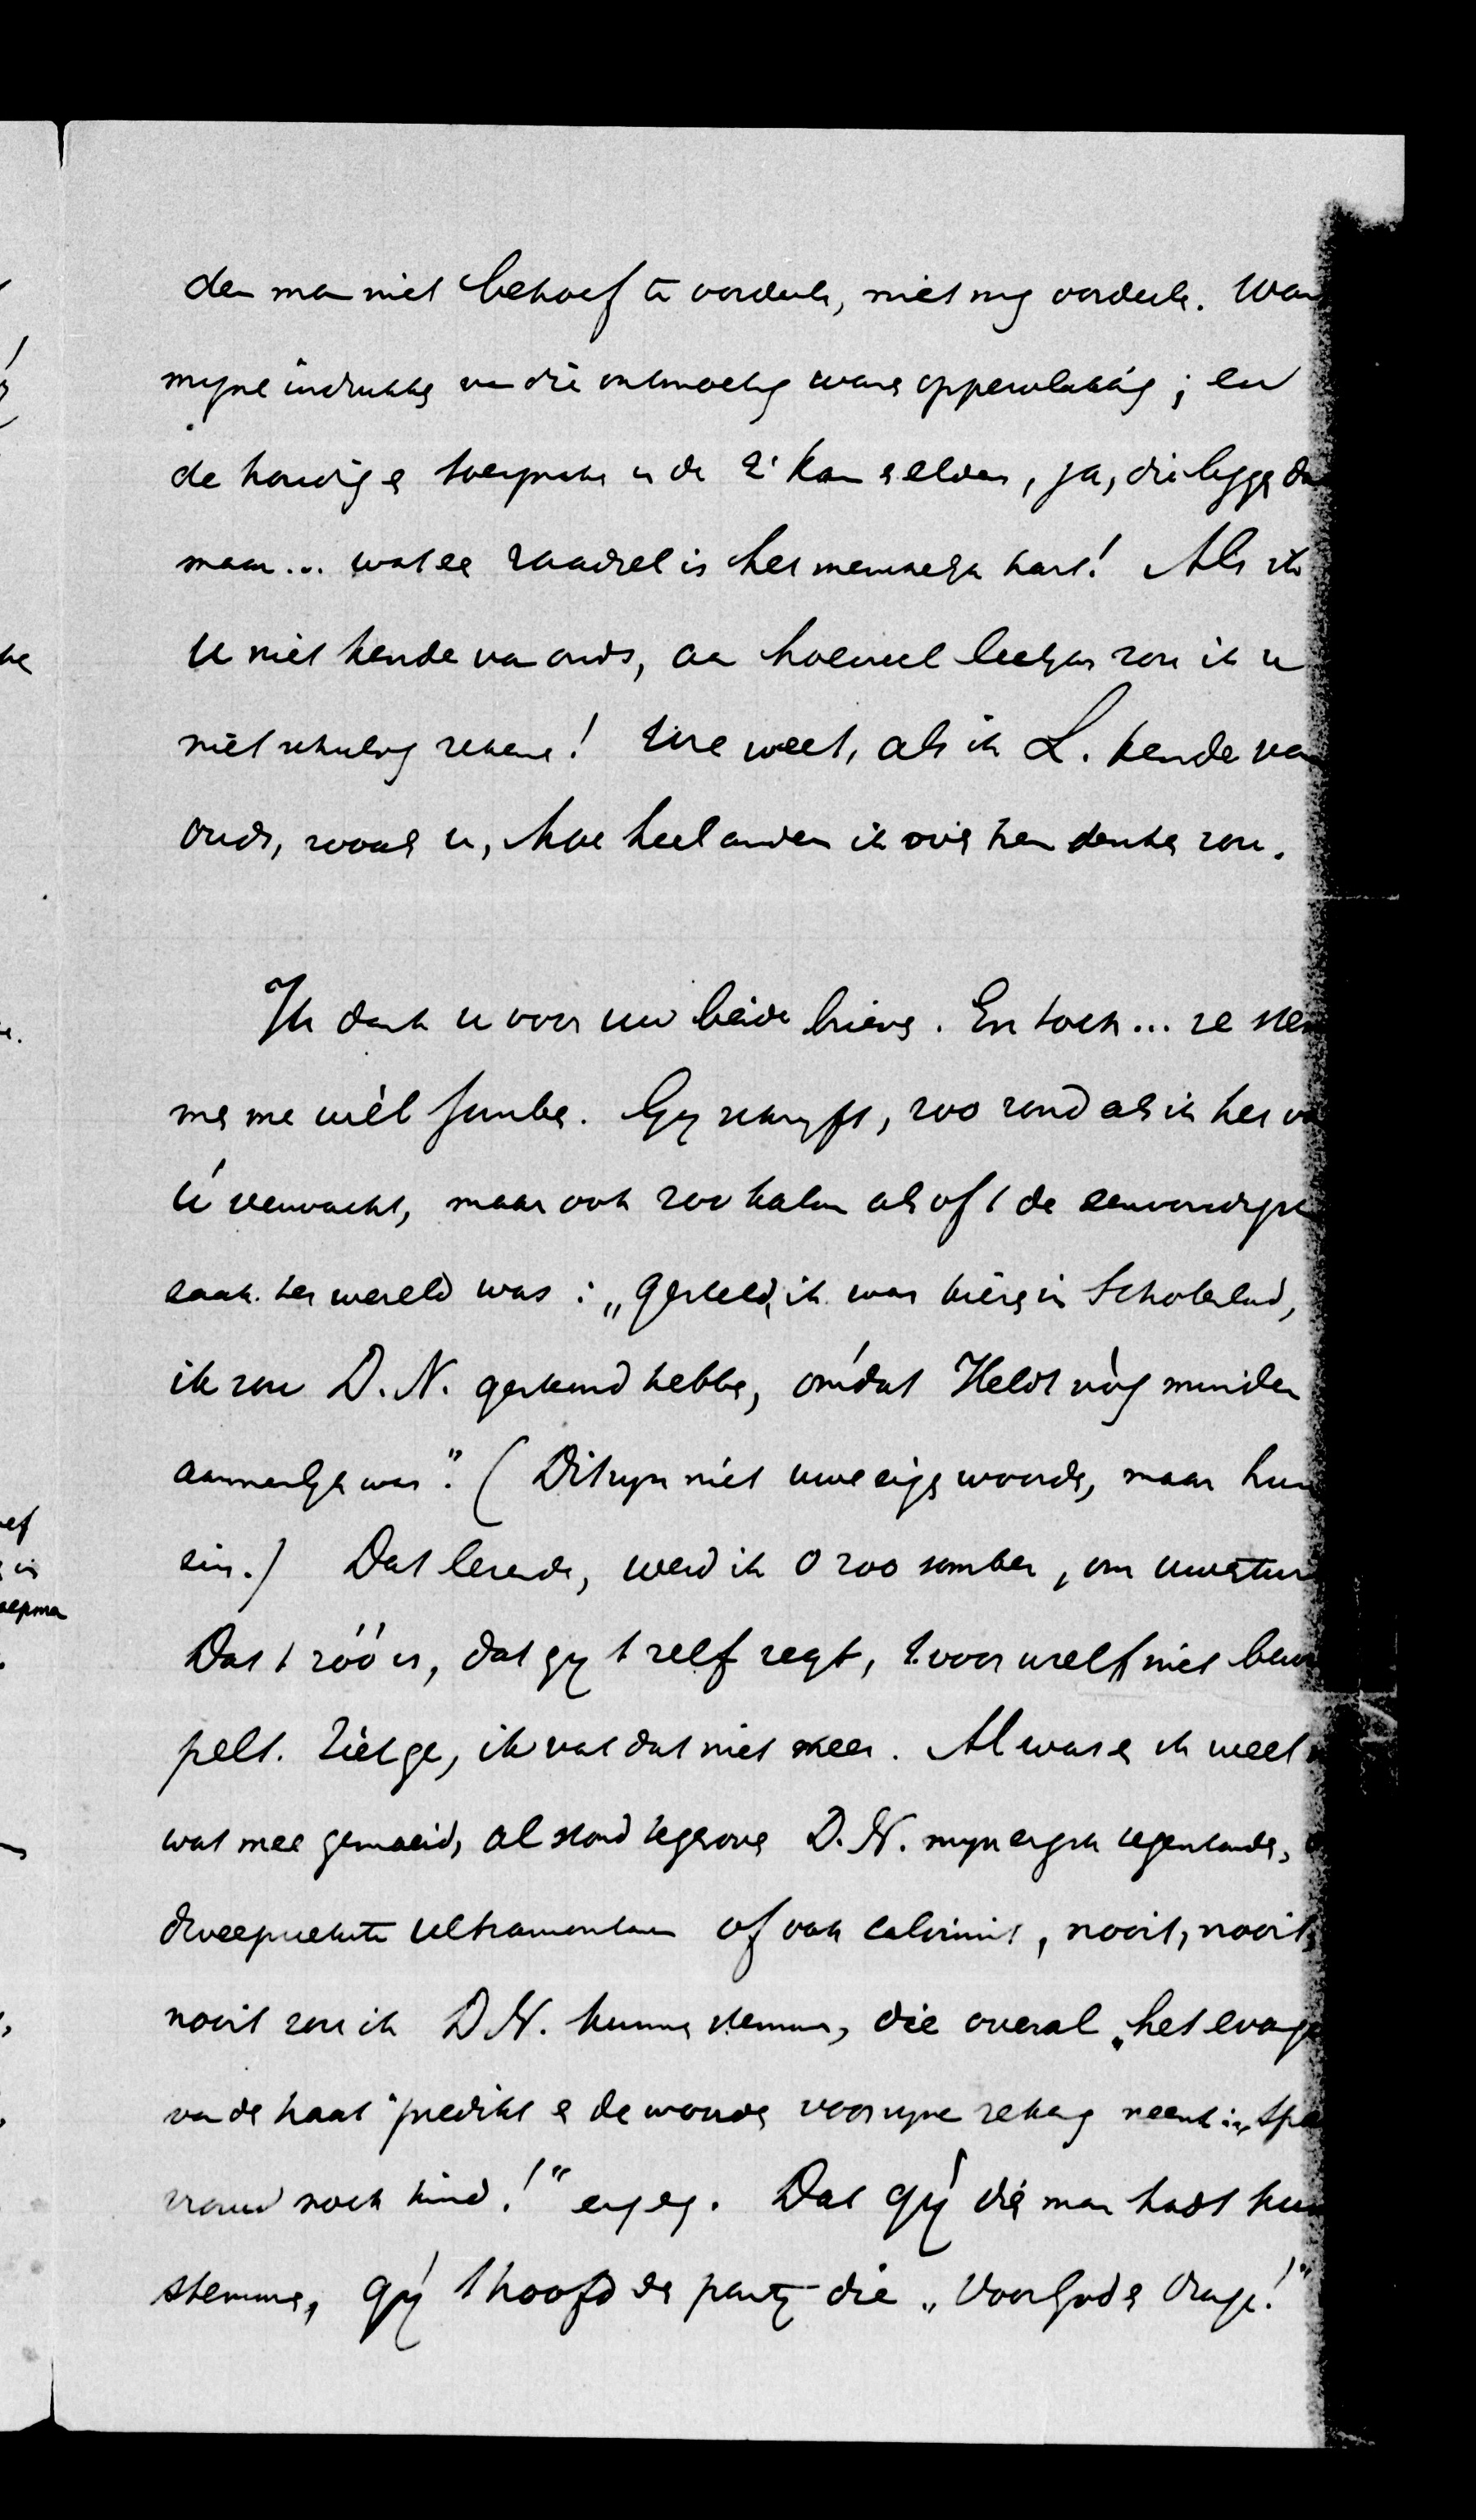 den man niet behoef te oordeelen, niet mag oordeelen. Wan
mijne indrukken van die ontmoeting waren oppervlakkig; en
de houdig en toespraken in de 2e Kamer en elders, ja, die liggen da
maar... wat een raadsel is het menschelijk hart! Als ik
U niet kende van ouds, aan hoeveel leelijks zou ik u
niet schuldig rekenen! Wie weet, als ik L. kende van
ouds, zooals u, hoe heel anders ik over hem denken zou.
Ik dank u voor uw beide brieven. En toch... ze stem
men me wèl somber. Gij schrijft, zoo rond als ik het va
ú verwacht, maar ook zoo kalm alsof 't de eenvoudigste
zaak ter wereld was: „Gesteld, ik was kiezer in Schoterland,
ik zou D.N. gestemd hebben, ómdat Heldt nòg minder
aannemelijk was". (Dit zijn niet uwe eigen woorden, maar hun
zin.) Dat lezende, werd ik o zoo somber, om uwentwil
Dat 't zóó is, dat gij 't zelf zegt, 't voor uzelf niet bew
pelt. Ziet ge, ik vat dat niet meer. Al was er ik weet n
wat mee gemoeid, al stond tegenover D.N. mijn ergste tegenstander,
dweepzieke ultramontaan of ook calvinist, nooit, nooit,
nooit zou ik D.N. kunnen stemmen, die overal „het evange
van de haat" predikt en de woorden voor zijne rekening neemt: „Spaar
vrouw noch kind!" enz. enz. Dat gij die man hadt kun
stemmen, gij 't hoofd der partij die „Voor Gods Oranje!"